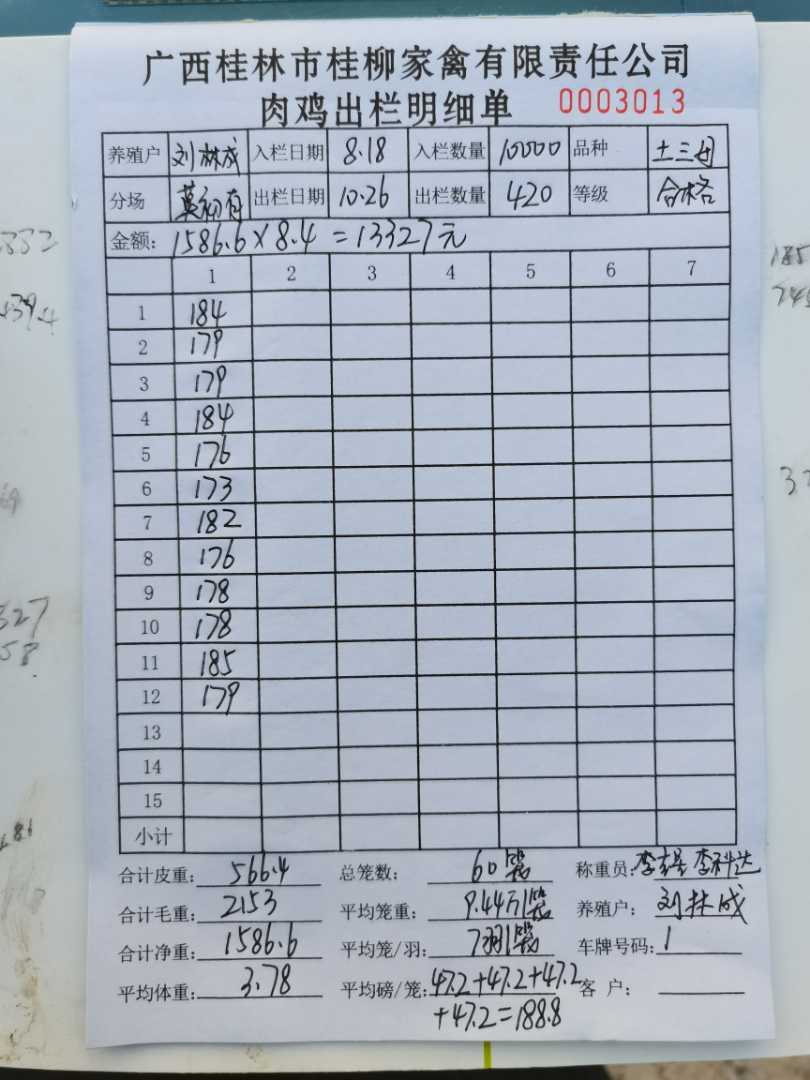 广西桂林市桂柳家禽有限责任公司
肉鸡出栏明细单 0003013
养殖户 刘林成 入栏日期 8.18 入栏数量 10000 品种 土三母
分场 莫初有 出栏日期 10.26 出栏数量 420 等级 合格
金额: 1586.6×8.4=13327元
1 2 3 4 5 6 7
1 184
2 179
3 179
4 184
5 176
6 173
7 182
8 176
9 178
10 178
11 185
12 179
13
14
15
小计
合计皮重: 566.4 总笼数: 60笼 称重员: 李 李科达
合计毛重: 2153 平均笼重: 9.44斤/笼 养殖户: 刘林成
合计净重: 1586.6 平均笼/羽: 7羽/笼 车牌号码: 1
平均体重: 3.78 平均磅/笼: 47.2+47.2+47.2 客户:
+47.2=188.8